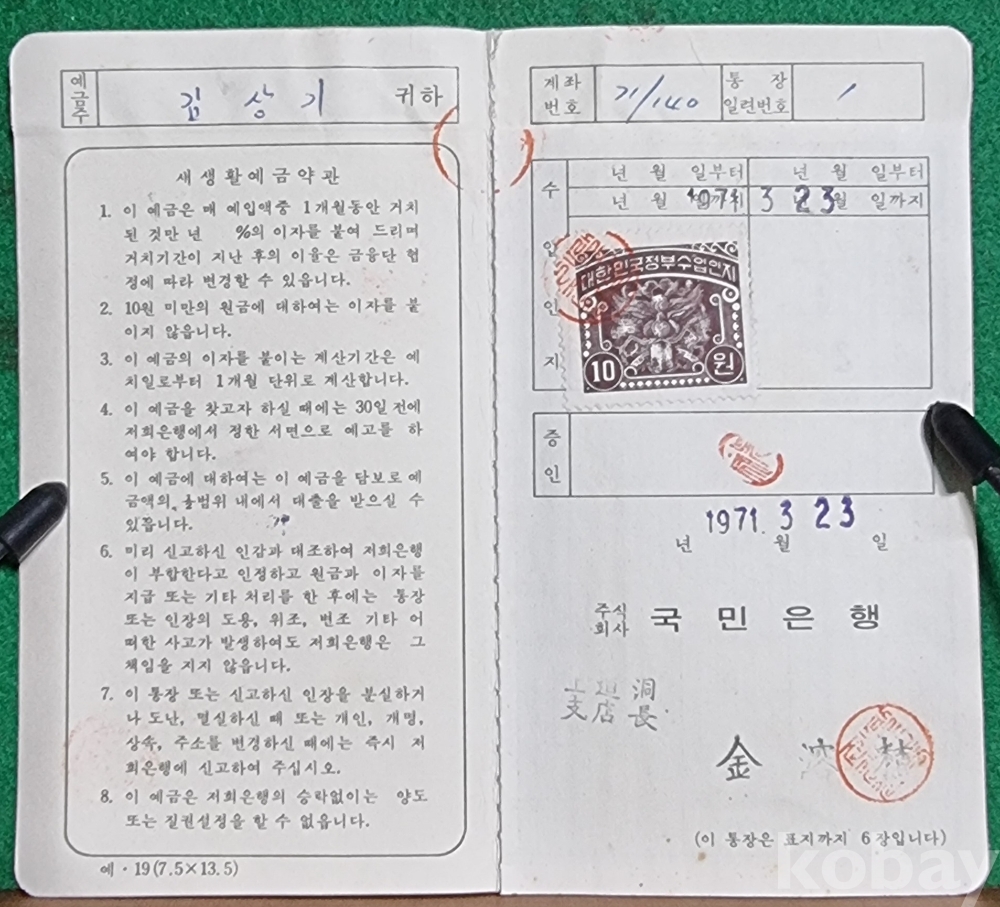 예금주 김 상 기 귀하
새생활예금약관
1. 이 예금은 매 예입액중 1개월동안 거치
된 것만 년 %의 이자를 붙여 드리며
거치기간이 지난 후의 이율은 금융단 협
정에 따라 변경할 수 있읍니다.
2. 10원 미만의 원금에 대하여는 이자를 붙
이지 않읍니다.
3. 이 예금의 이자를 붙이는 계산기간은 예
치일로부터 1개월 단위로 계산합니다.
4. 이 예금을 찾고자 하실 때에는 30일 전에
저희은행에서 정한 서면으로 예고를 하
여야 합니다.
5. 이 예금에 대하여는 이 예금을 담보로 예
금액의 범위 내에서 대출을 받으실 수
있읍니다.
6. 미리 신고하신 인감과 대조하여 저희은행
이 부합한다고 인정하고 원금과 이자를
지급 또는 기타 처리를 한 후에는 통장
또는 인장의 도용, 위조, 변조 기타 어
떠한 사고가 발생하여도 저희은행은 그
책임을 지지 않읍니다.
7. 이 통장 또는 신고하신 인장을 분실하거
나 도난, 멸실하신 때 또는 개인, 개명,
상속, 주소를 변경하신 때에는 즉시 저
희은행에 신고하여 주십시오.
8. 이 예금은 저희은행의 승락없이는 양도
또는 질권설정을 할 수 없읍니다.
예·19(7.5×13.5)
계좌번호 71/140 통장일련번호 1
수입인지
년 월 일부터 년 월 일부터
년 월 1971 3 23 월 일까지
대한민국정부수입인지
10 원
증인
1971. 3 23
년 월 일
주식회사 국민은행
洞
支店長
金
(이 통장은 표지까지 6장입니다)
kobay